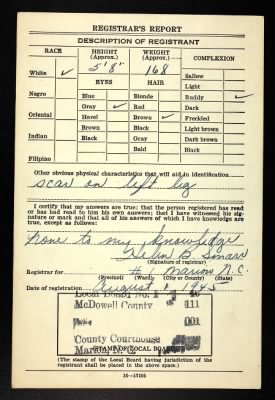 REGISTRAR'S REPORT
DESCRIPTION OF REGISTRANT
RACE HEIGHT (Approx.) WEIGHT (Approx.) COMPLEXION
5'8" 168
White ✓ Sallow
EYES HAIR Light
Negro Blue Blonde Ruddy ✓
Gray ✓ Red Dark
Oriental Hazel Brown ✓ Freckled
Brown Black Light brown
Indian Black Gray Dark brown
Bald Black
Filipino
Other obvious physical characteristics that will aid in identification
scar on left leg
I certify that my answers are true; that the person registered has read or has had read to him his own answers; that I have witnessed his signature or mark and that all of his answers of which I have knowledge are true, except as follows:
none to my knowledge
B.
(Signature of registrar)
Registrar for # Marion N.C.
(Precinct) (Ward) (City or County) (State)
Date of registration August 1945
Local Board No. 1
McDowell County 111
001
County Courthouse
Marion, N. C.
(STAMP OF LOCAL BOARD)
(The stamp of the Local Board having jurisdiction of the registrant shall be placed in the above space.)
16—17105